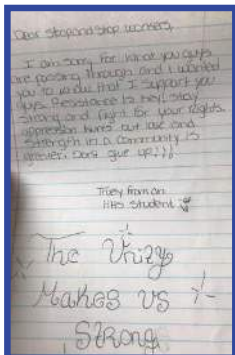 Dear Stop and Stop workers,
I am sorry for what you guys
are passing through and I wanted
you to know that I support you
guys. Resistance is key! Stay
strong and fight for your rights.
oppression hurts but love and
strength in a community is
greater. Don't give up!!!
Truly from an
HHS Student
The Unity
Makes us
Strong